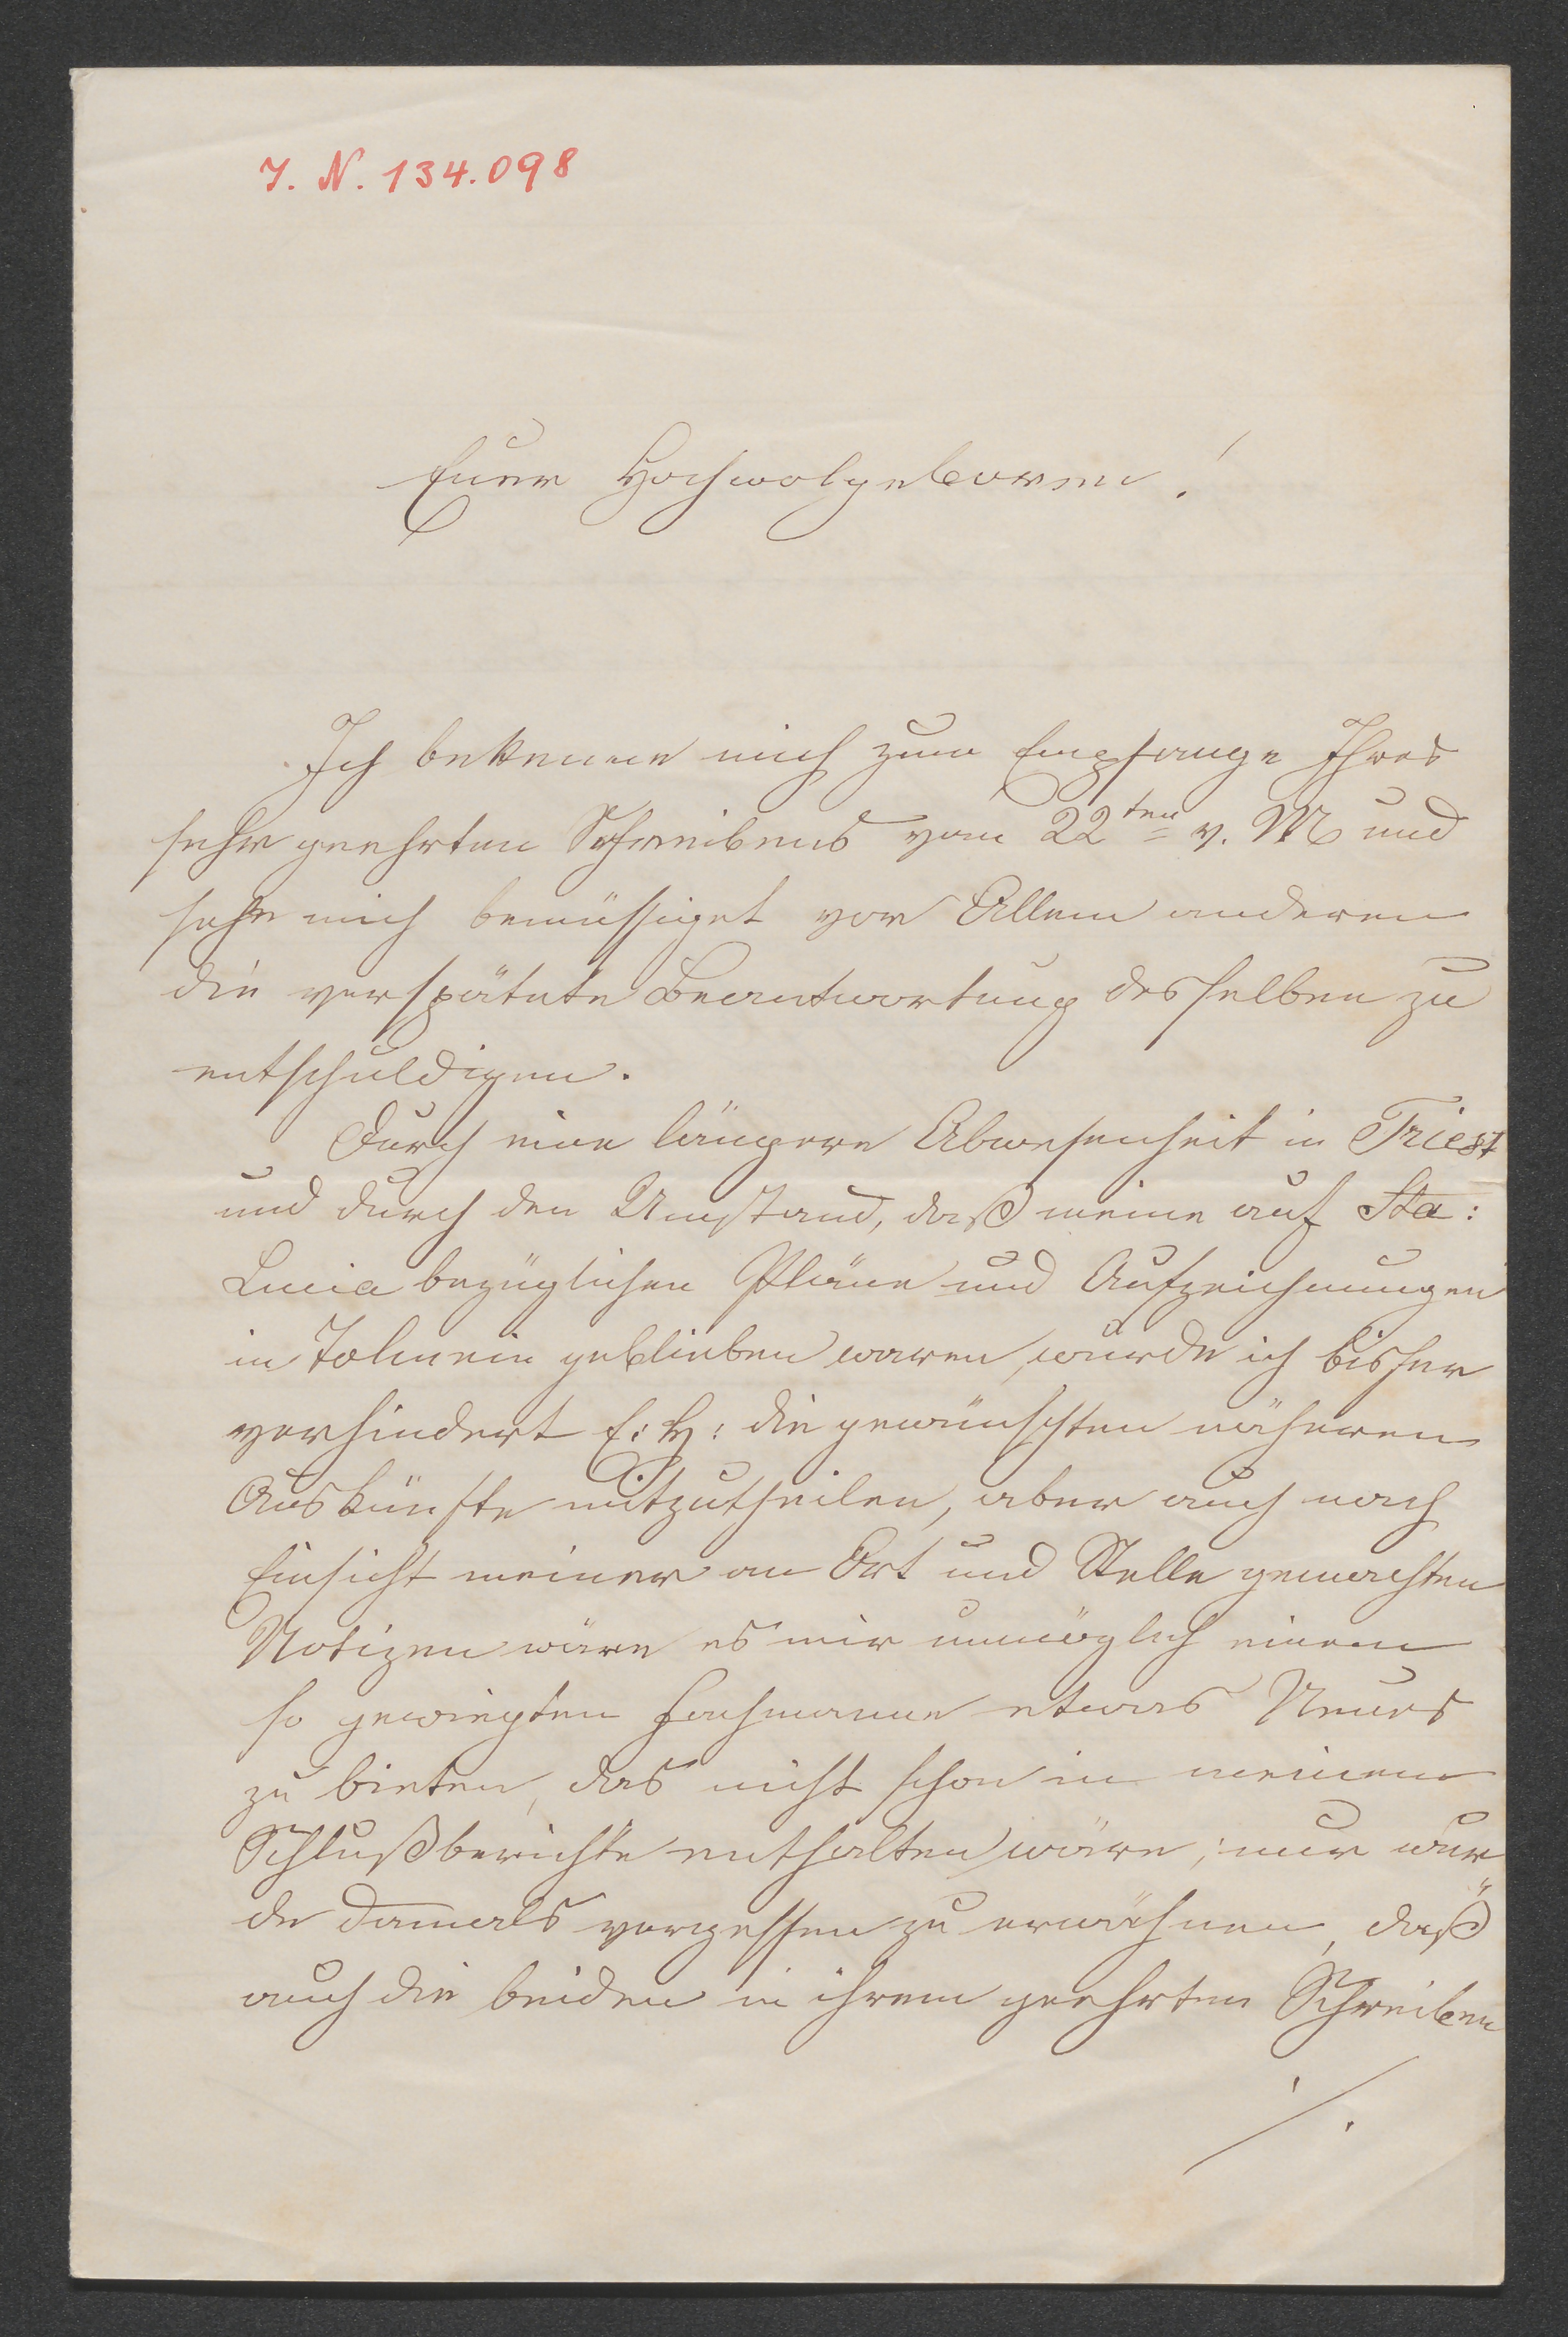 I. N. 134.098
Euer Hochwolgeboren!
Ich bekenne mich zum Empfange Ihres
sehr geehrten Schreibens vom 22ten v. M und
sehe mich bemüssiget vor Allem anderen
die verspätete Beantwortung desselben zu
entschuldigen.
Durch eine längere Abwesenheit in Triest
und durch den Umstand, daß meine auf Sta:
Lucia bezüglichen Pläne und Aufzeichnungen
in Tolmein geblieben waren, wurde ich bisher
verhindert E: H: die gewünschten näheren
Auskünfte mitzutheilen, aber auch nach
Einsicht meiner an Ort und Stelle gemachten
Notizen wäre es mir unmöglich einem
so gewiegten Fachmanne etwas Neues
zu bieten, das nicht schon in meinem
Schlußberichte enthalten wäre; nur wur
de damals vergessen zu erwähnen, daß
auch die beiden in ihrem geehrten Schreiben
./.